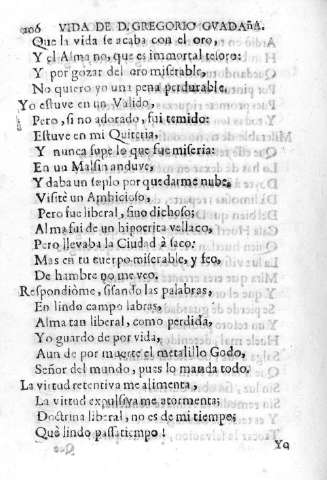 206 VIDA DE D. GREGORIO GVADAñA.
Que la vida se acaba con el oro,
Y el Alma no, que es immortal tesoro:
Y por gozar del oro miserable,
No quiero yo una pena perdurable.
Yo estuve en un Valido,
Pero, si no adorado, fui temido:
Estuve en mi Quiteria,
Y nunca supe lo que fue miseria:
En un Malsin anduve,
Y daba un soplo por quedarme nube,
Visitè un Ambicioso,
Pero fue liberal, sino dichoso;
Alma fui de un hipocrita vellaco,
Pero llevaba la Ciudad à saco:
Mas en tu cuerpo miserable, y feo,
De hambre no me veo.
Respondiòme, sisando las palabras,
En lindo campo labras,
Alma tan liberal, como perdida,
Yo guardo de por vida,
Aun de por muerte el metalillo Godo,
Señor del mundo, pues lo manda todo.
La virtud retentiva me alimenta,
La virtud expulsiva me atormenta;
Doctrina liberal, no es de mi tiempo;
Què lindo passatiempo!
Yo